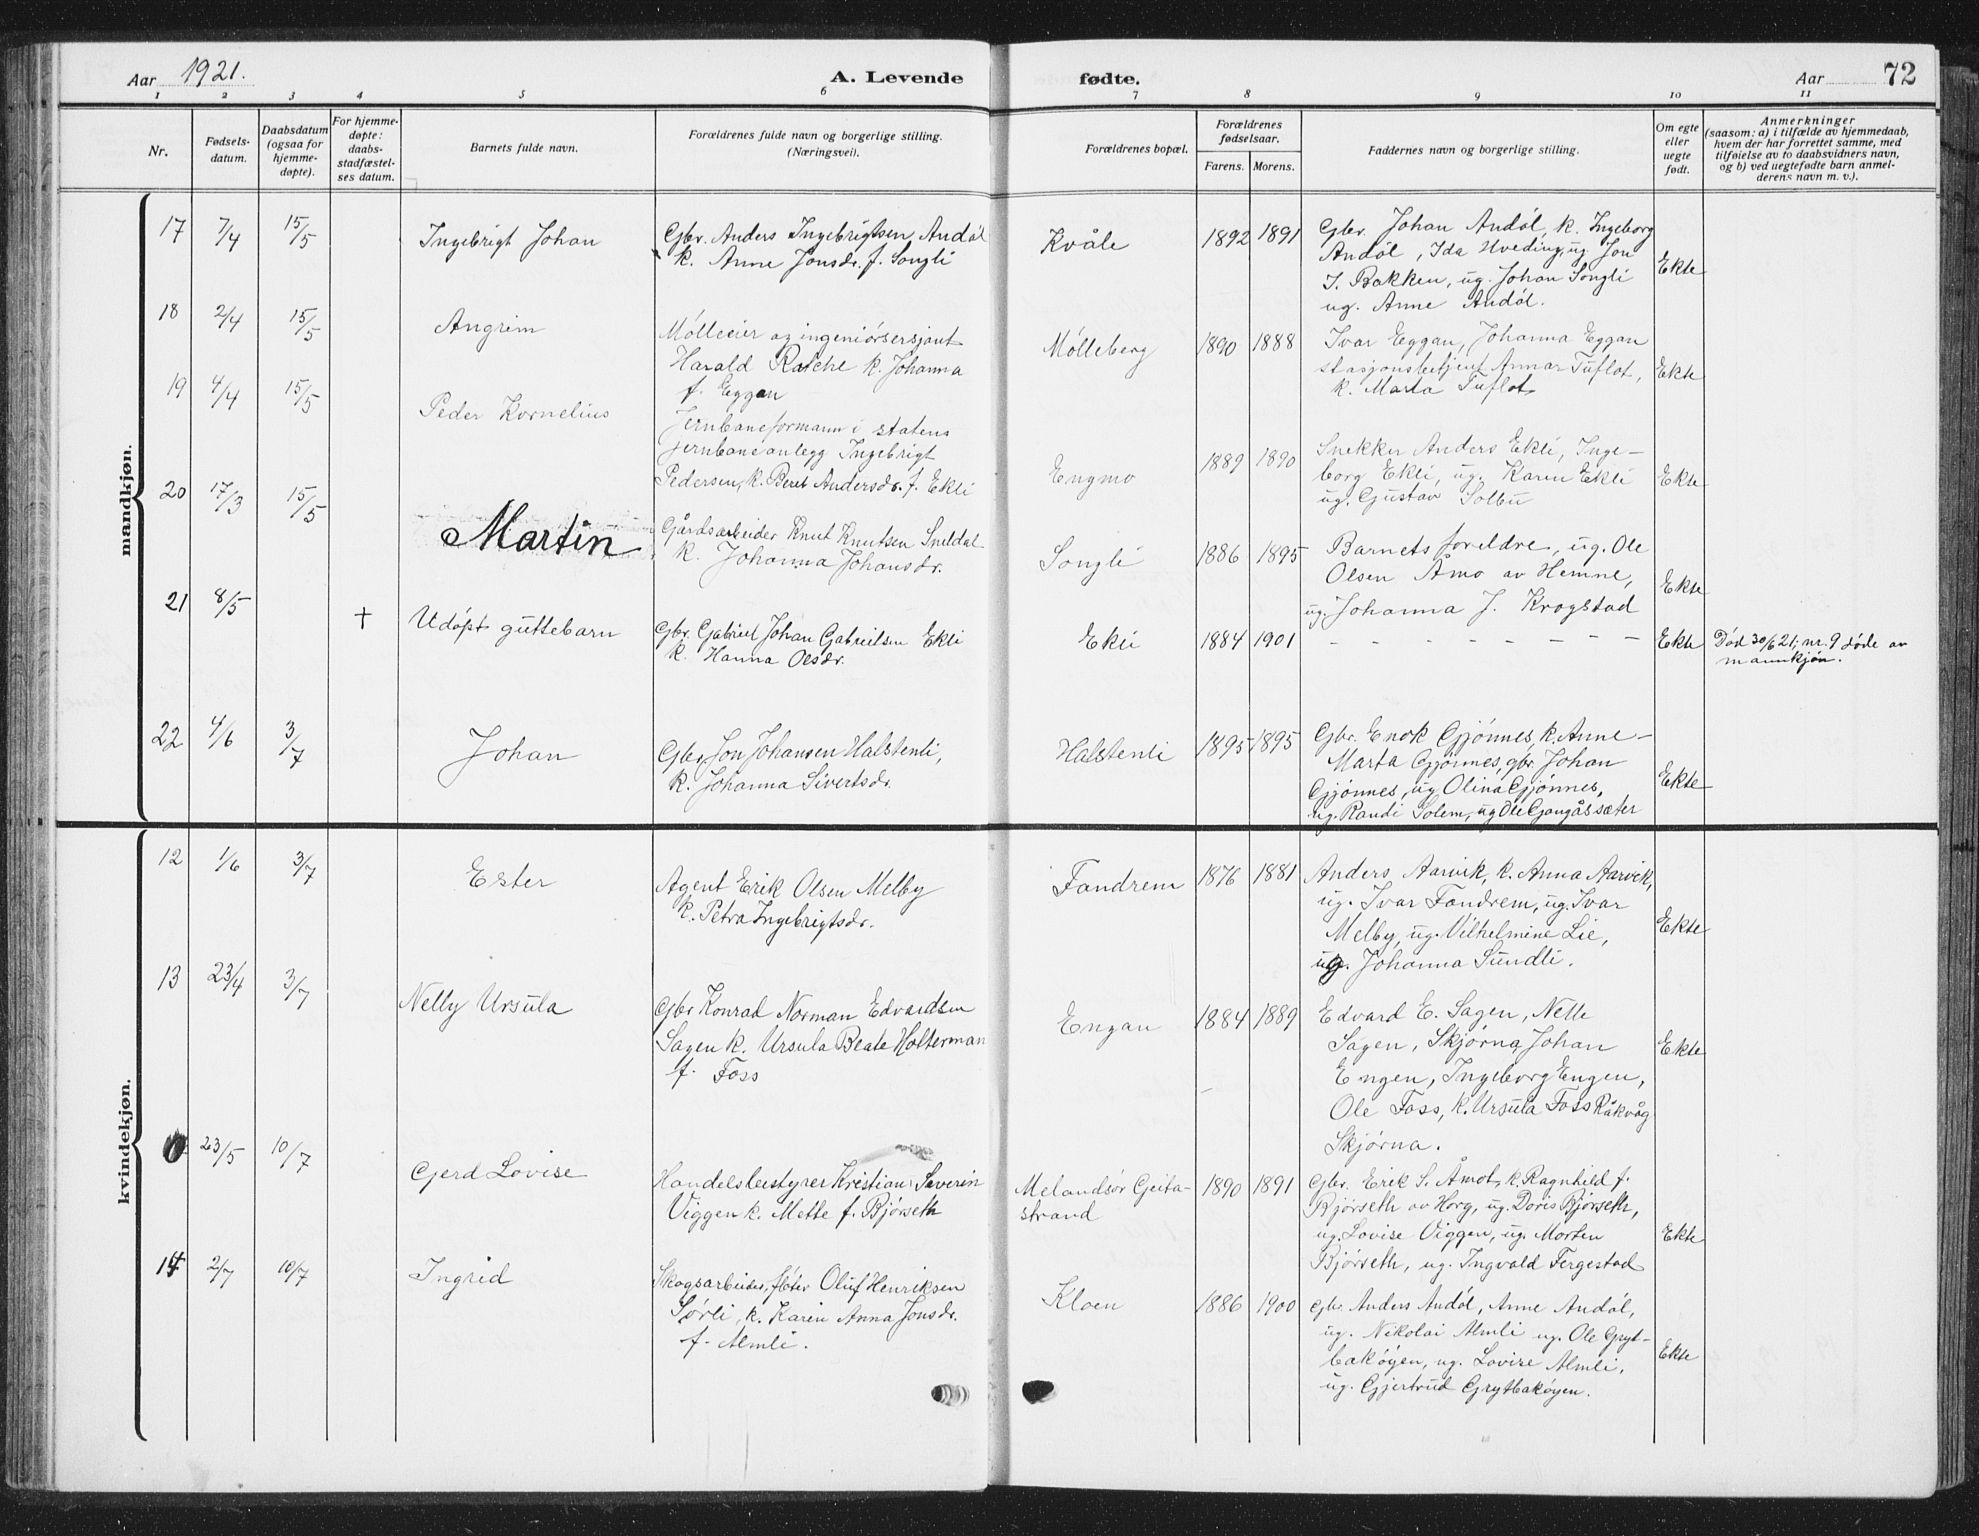 Aar 1921.
A. Levende fødte.
Aar 72
1 2 3 4 5 6 7 8 9 10 11
Nr.
Fødsels-
datum.
Daabsdatum
(ogsaa for
hjemme-
døpte).
For hjemme-
døpte:
daabs-
stadfæstel-
ses datum.
Barnets fulde navn.
Forældrenes fulde navn og borgerlige stilling.
(Næringsvei).
Forældrenes bopæl.
Forældrenes
fødselsaar.
Farens. Morens.
Faddernes navn og borgerlige stilling.
Om egte
eller
uegte
født.
Anmerkninger
(saasom: a) i tilfælde av hjemmedaab,
hvem der har forrettet samme, med
tilføielse av to daabsvidners navn,
og b) ved uegtefødte barn anmel-
derens navn m. v.).
mandkjøn.
17 7/4 15/5 Ingebrigt Johan
Gbr. Anders Ingebrigtsen Andøl
k. Anne Jonsdr. f. Songli
Kvåle 1892 1891
Gbr. Johan Andøl, k. Ingeborg
Andøl, Ida Hveding, ug. Jon
J. Bakken, ug. Johan Songli
ug. Anne Andøl.
Ekte
18 2/4 15/5 Angrim
Mølleeier og ingeniørsersjant
Harald Rasche k. Johanna
f. Eggan
Mølleberg 1890 1888
Ivar Eggan, Johanna Eggan
stasjonsbetjent Annar Tuflot,
k. Marta Tuflot
Ekte
19 4/4 15/5 Peder Kornelius
Jernbaneformann i statens
jernbaneanlegg Ingebrigt
Pedersen, k. Beret Andersdr. f. Ekli
Engmo 1889 1890
Snekker Anders Ekli, Inge-
borg Ekli, ug. Karen Ekli
ug. Gustav Solbu
Ekte
20 17/3 15/5 Martin
Gårdsarbeider Knut Knutsen Snildal
k. Johanna Johansdr.
Songli 1886 1895
Barnets foreldre, ug. Ole
Olsen Åmo av Hemne,
ug. Johanna J. Krogstad
Ekte
21 8/5 † Udøpt guttebarn
Gbr. Gabriel Johan Gabrielsen Ekli
k. Hanna Olsdr.
Ekli 1884 1901
- - - - - - - -
Ekte
Død 30/6 21, nr. 9 døde av
mannkjøn.
22 4/6 3/7 Johan
Gbr. Jon Johansen Halstenli,
k. Johanna Sivertsdr.
Halstenli 1895 1895
Gbr. Enok Gjønnes, k. Anne-
Marta Gjønnes, gbr. Johan
Gjønnes, ug. Olina Gjønnes,
ug. Randi Solem, ug. Ole Gangåssæter
Ekte
kvindekjøn.
12 1/6 3/7 Ester
Agent Erik Olsen Melby
k. Petra Ingebrigtsdr.
Fandrem 1876 1881
Anders Aarvik, k. Anna Aarvik,
ug. Ivar Fandrem, ug. Ivar
Melby, ug. Vilhelmine Lie,
ug. Johanna Sundli.
Ekte
13 23/4 3/7 Nelly Ursula
Gbr Konrad Norman Edvardsen
Sagen k. Ursula Beate Holterman
f. Foss
Engan 1884 1889
Edvard E. Sagen, Nelle
Sagen, Skjørna, Johan
Engen, Ingeborg Engen,
Ole Foss, k. Ursula Foss Råkvåg
Skjørna.
Ekte
23/5 10/7 Gjerd Lovise
Handelsbestyrer Kristian Severin
Viggen k. Mette f. Bjørseth
Melandsør Geita-
strand
1890 1891
Gbr. Erik S. Åmot, k. Ragnhild f.
Bjørseth av Horg, ug. Doris Bjørseth,
ug. Lovise Viggen, ug. Morten
Bjørseth, ug. Ingvald Fergestad
Ekte
14 2/7 10/7 Ingrid
Skogsarbeider, fløter Oluf Henriksen
Sørli, k. Karen Anna Jonsdr.
f. Almli.
Kloen 1886 1900
Gbr. Anders Andøl, Anne Andøl,
ug. Nikolai Almli ug. Ole Gryt-
bakøyen, ug. Lovise Almli,
ug. Gjertrud Grytbakøyen.
Ekte